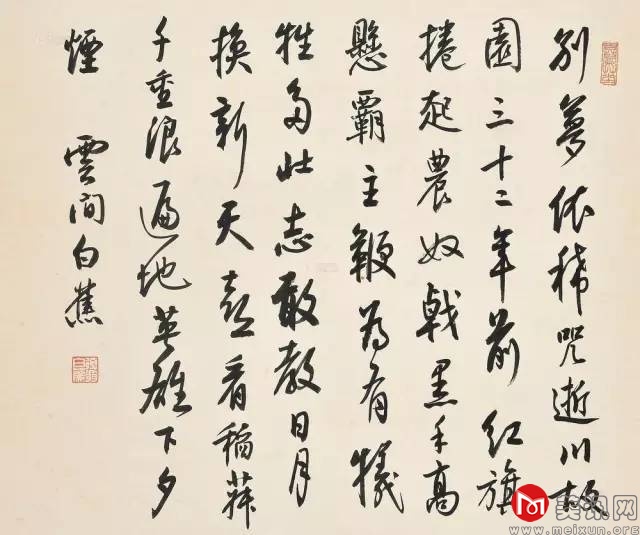 别夢依稀咒逝川故
園三十二年前红旗
捲起農奴戟黑手高
懸霸主鞭为有犧
牲多壮志敢教日月
换新天喜看稻菽
千重浪遍地英雄下夕
煙 雲间白蕉
美讯网
www.meixun.org